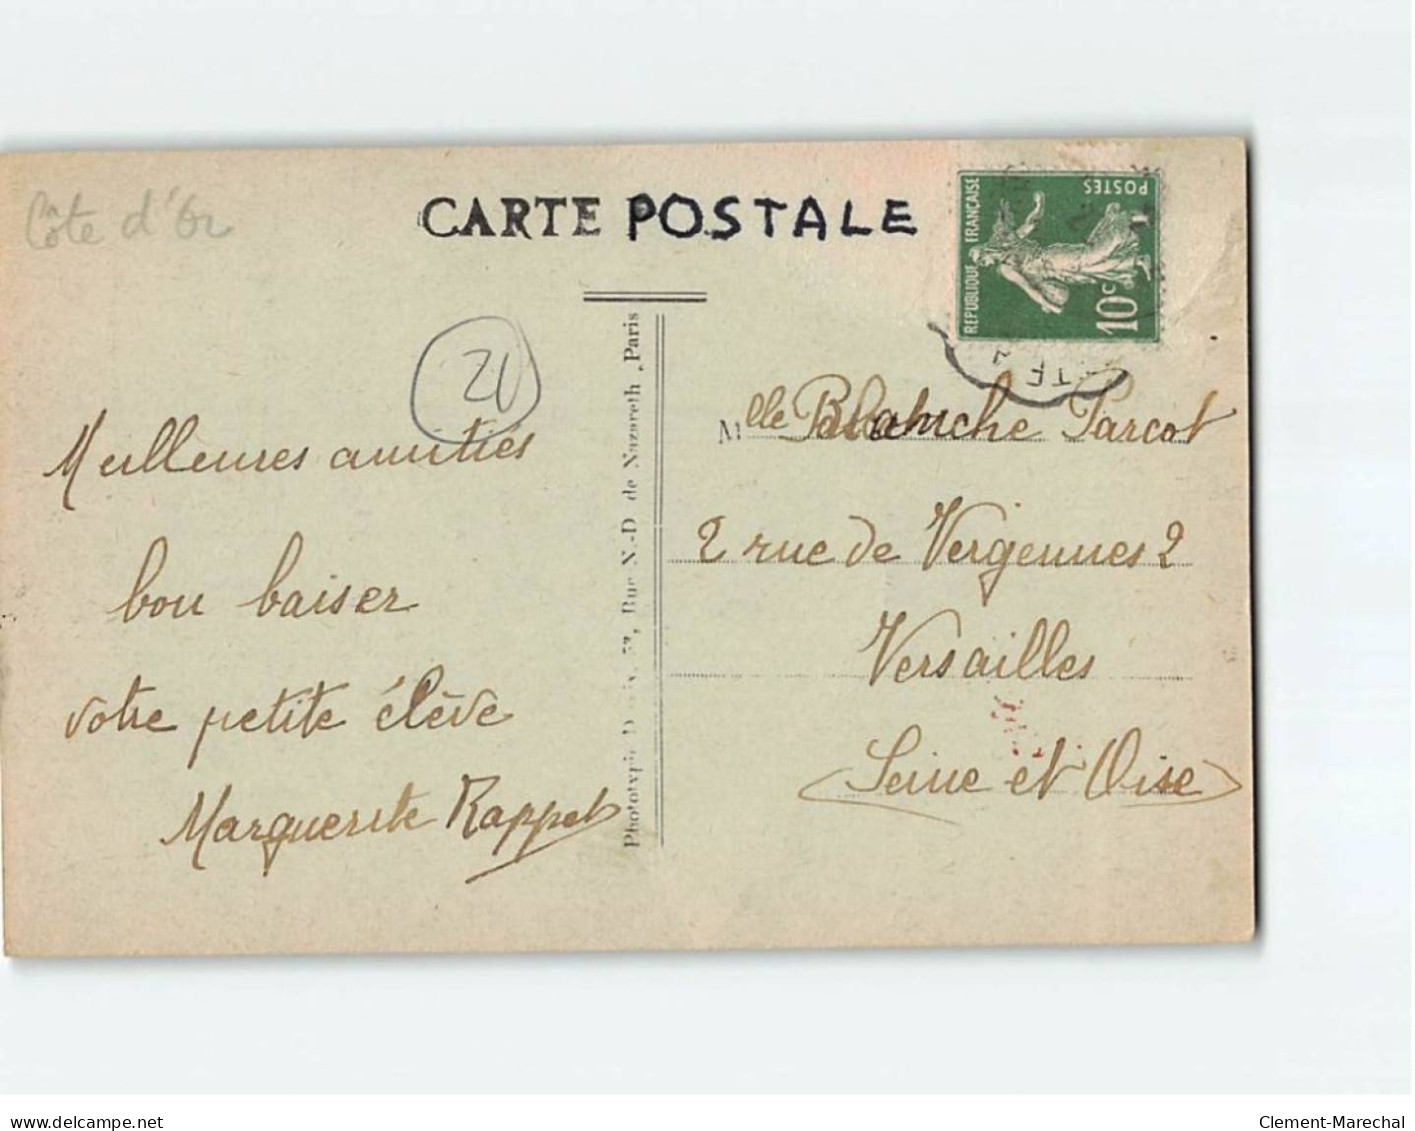 Côte d'Or
CARTE POSTALE
REPUBLIQUE FRANCAISE
POSTES
10c
Meilleures amitiés
bon baiser
votre petite élève
Marguerite Rappet
Phototypie
Rue N.-D. de Nazareth, Paris
Mlle Blanche Parcot
2 rue de Vergennes 2
Versailles
(Seine et Oise)
delcampe.net
Clement-Marechal